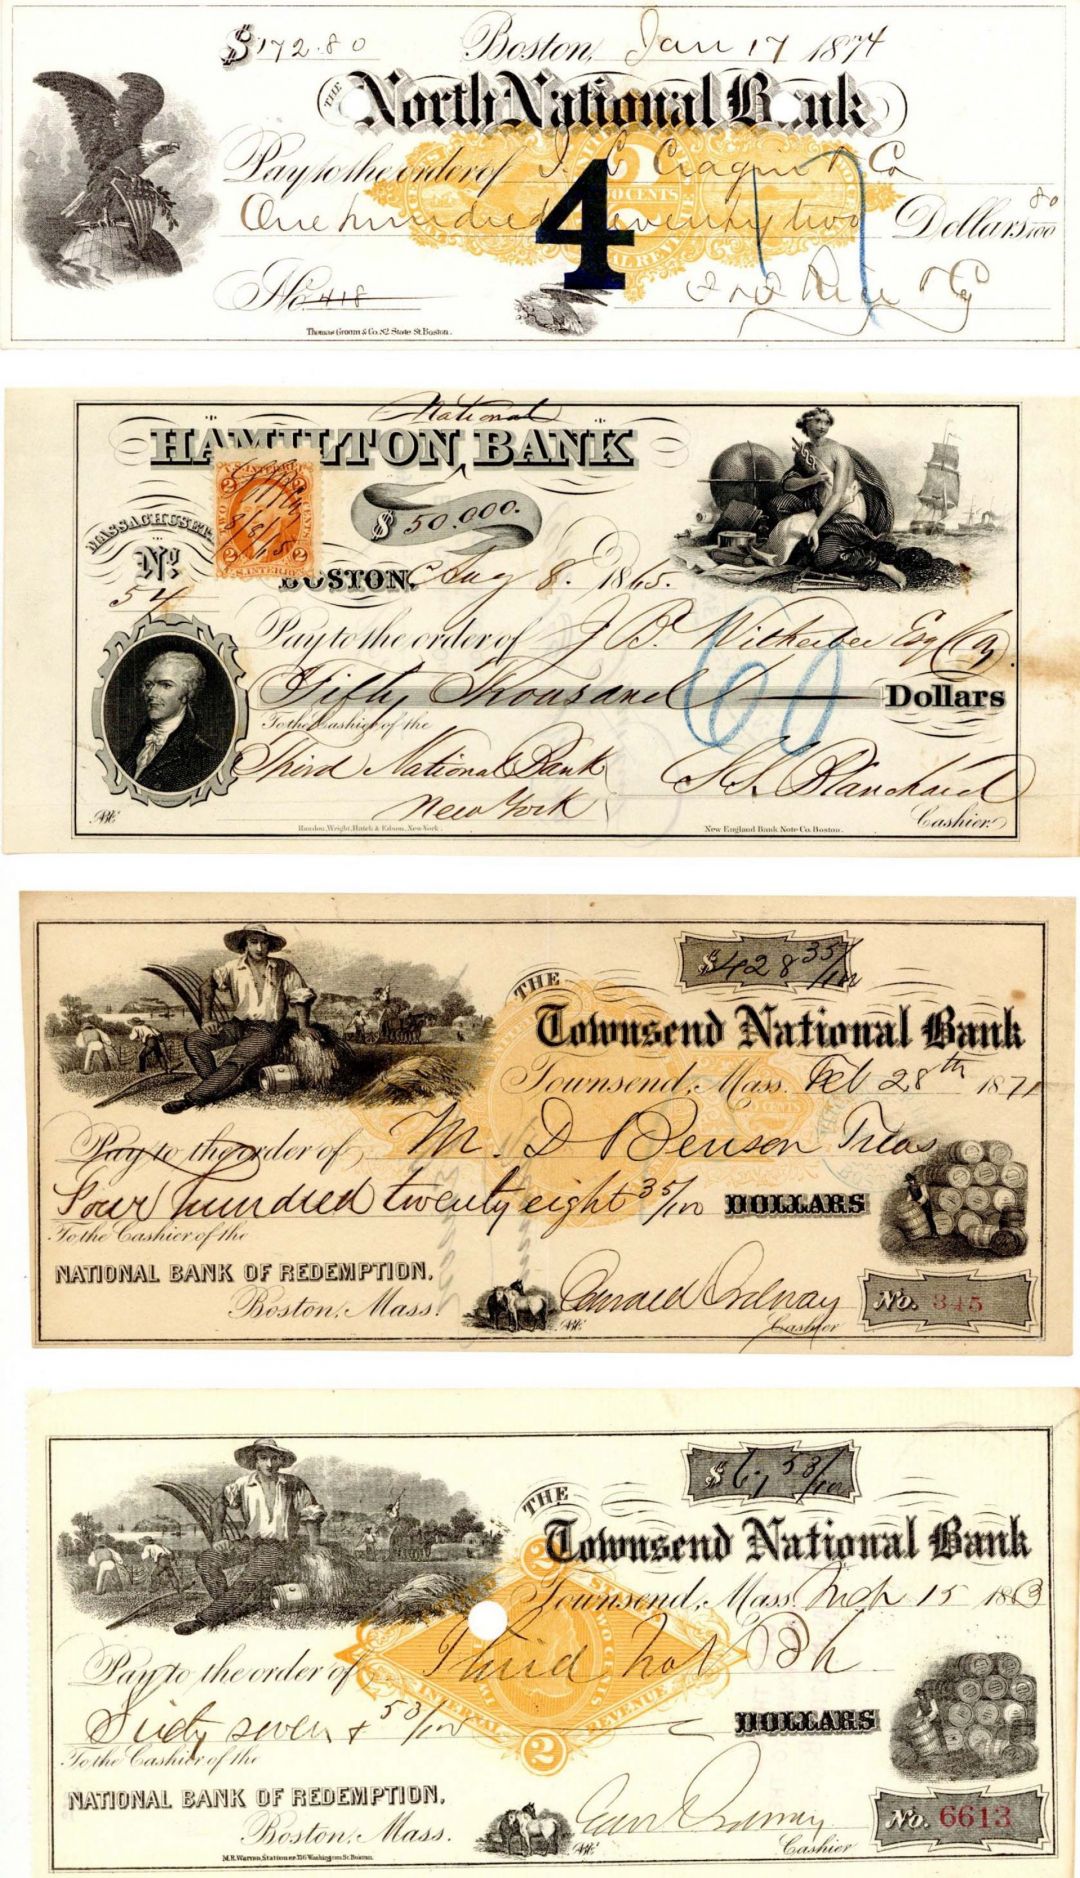 $172.80 Boston, Jan 17 1874
THE North National B nk
Pay to the order of I. L Cragin & Co
4
TWO CENTS
One hundred seventy two Dollars 80/100
No. 418
Thomas Groom & Co. 82 State St. Boston.
National
HAMILTON BANK
MASSACHUSET
$ 50,000.
No. 54
8/8/65
BOSTON, Aug 8. 1865.
Pay to the order of J. B. Witherbee Esq Cay
Fifty Thousand Dollars
60
To the Cashier of the
Third National Bank
New York
S. S. Blanchard
Cashier.
Rawdon, Wright, Hatch & Edson, New York.
New England Bank Note Co. Boston.
$428 35/100
THE
Townsend National Bank
Townsend, Mass. Feb 28th 1871
Pay to the order of M. D Benson Treas
Four hundred twenty eight 35/100 DOLLARS
To the Cashier of the
NATIONAL BANK OF REDEMPTION,
Boston, Mass.
Edward Ordway
Cashier
No. 345
$67, 53/100
THE
Townsend National Bank
Townsend, Mass. Mch 15 1883
Pay to the order of Third Nat Bk
INTERNAL REVENUE
2
Sixty seven & 53/100 DOLLARS
To the Cashier of the
NATIONAL BANK OF REDEMPTION,
Boston, Mass.
Edw Ordway
Cashier
No. 6613
M.R. Warren, Stationer 336 Washington St. Boston.